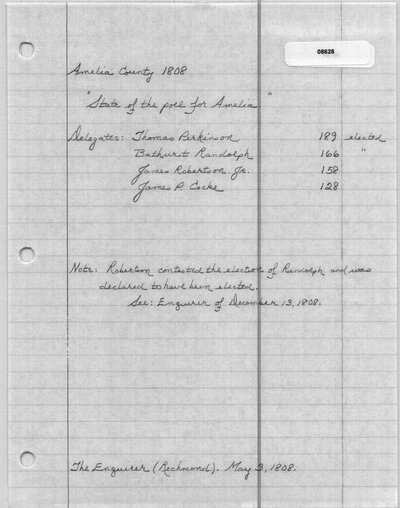 08628
Amelia County 1808
"State of the poll for Amelia"
Delegates: Thomas Perkinson 189 elected
Bathurst Randolph 166 "
James Robertson, Jr. 158
James P. Cocke 128
Note: Robertson contested the election of Randolph and was
declared to have been elected.
See: Enquirer of December 13, 1808.
The Enquirer (Richmond). May 3, 1808.